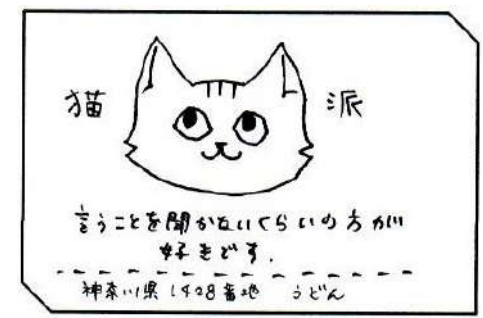 猫 派
言うことを聞かないくらいの方が
好きです.
神奈川県1428番地 うどん